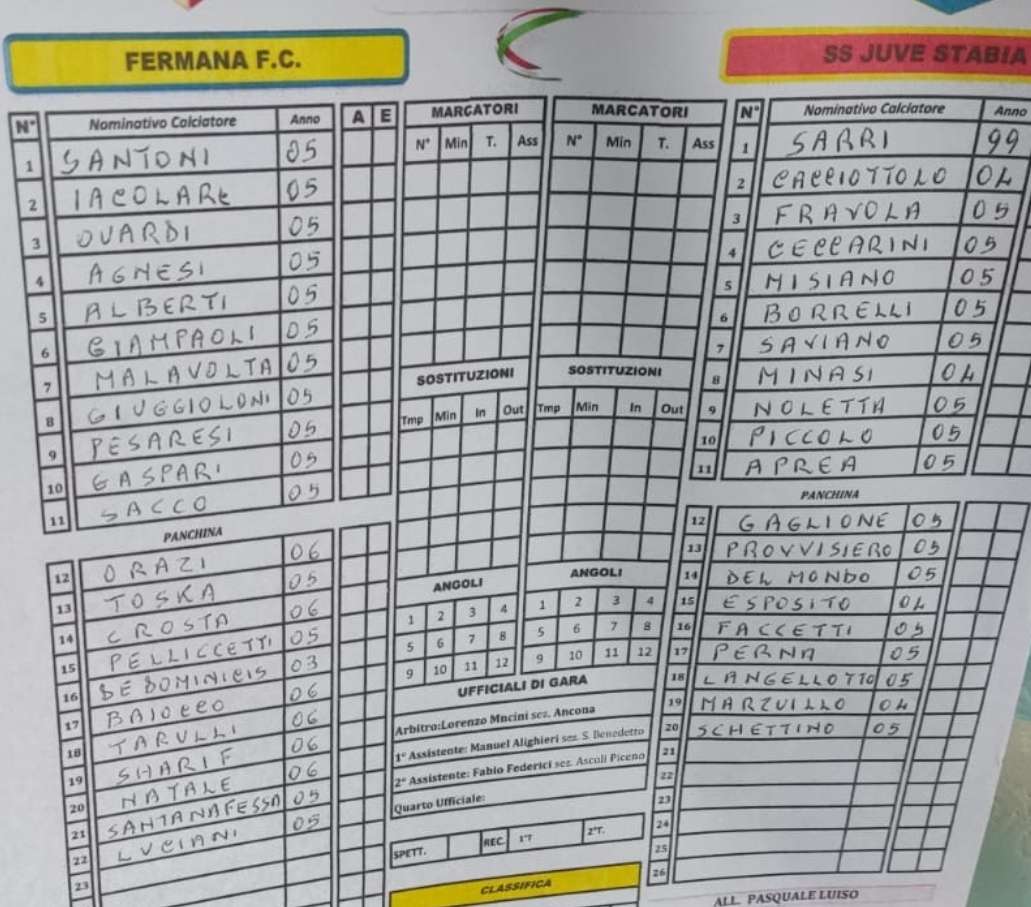 FERMANA F.C.
N° Nominativo Calciatore Anno A E
1 SANTONI 05
2 IACOLARE 05
3 OVARDI 05
4 AGNESI 05
5 ALBERTI 05
6 GIAMPAOLI 05
7 MALAVOLTA 05
8 GIUGGIOLONI 05
9 PESARESI 05
10 GASPARI 05
11 SACCO 05
PANCHINA
12 ORAZI 06
13 TOSKA 05
14 CROSTA 06
15 PELLICCETTI 05
16 DE DOMINICIS 03
17 BAIOCCO 06
18 TARULLI 06
19 SHARIF 06
20 NATALE 06
21 SANTANAFESSA 05
22 LUCIANI 05
23
MARCATORI MARCATORI
N° Min T. Ass N° Min T. Ass
SOSTITUZIONI SOSTITUZIONI
Tmp Min In Out Tmp Min In Out
ANGOLI ANGOLI
1 2 3 4 1 2 3 4
5 6 7 8 5 6 7 8
9 10 11 12 9 10 11 12
UFFICIALI DI GARA
Arbitro:Lorenzo Mncini sez. Ancona
1° Assistente: Manuel Alighieri sez. S. Benedetto
2° Assistente: Fabio Federici sez. Ascoli Piceno
Quarto Ufficiale:
SPETT. REC. 1°T 2°T.
CLASSIFICA
SS JUVE STABIA
N° Nominativo Calciatore Anno
1 SARRI 99
2 CACCIOTTOLO 04
3 FRAVOLA 05
4 CECCARINI 05
5 MISIANO 05
6 BORRELLI 05
7 SAVIANO 05
8 MINASI 04
9 NOLETTA 05
10 PICCOLO 05
11 APREA 05
PANCHINA
12 GAGLIONE 05
13 PROVVISIERO 05
14 DEL MONDO 05
15 ESPOSITO 04
16 FACCETTI 05
17 PERNA 05
18 LANGELLOTTO 05
19 MARZUILLO 04
20 SCHETTINO 05
21
22
23
24
25
26
ALL. PASQUALE LUISO